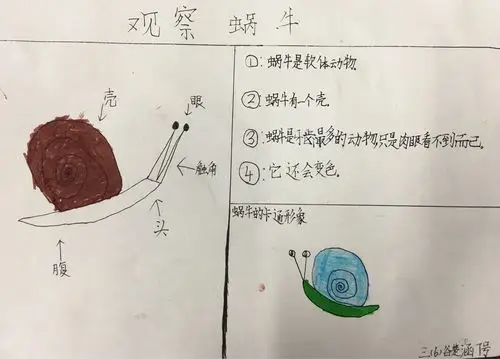 观察蜗牛
壳
眼
触角
头
腹
①:蜗牛是软体动物.
②:蜗牛有一个壳.
③:蜗牛是牙齿最多的动物,只是肉眼看不到而已.
④:它还会变色.
蜗牛的卡通形象
三(6)谷楚涵